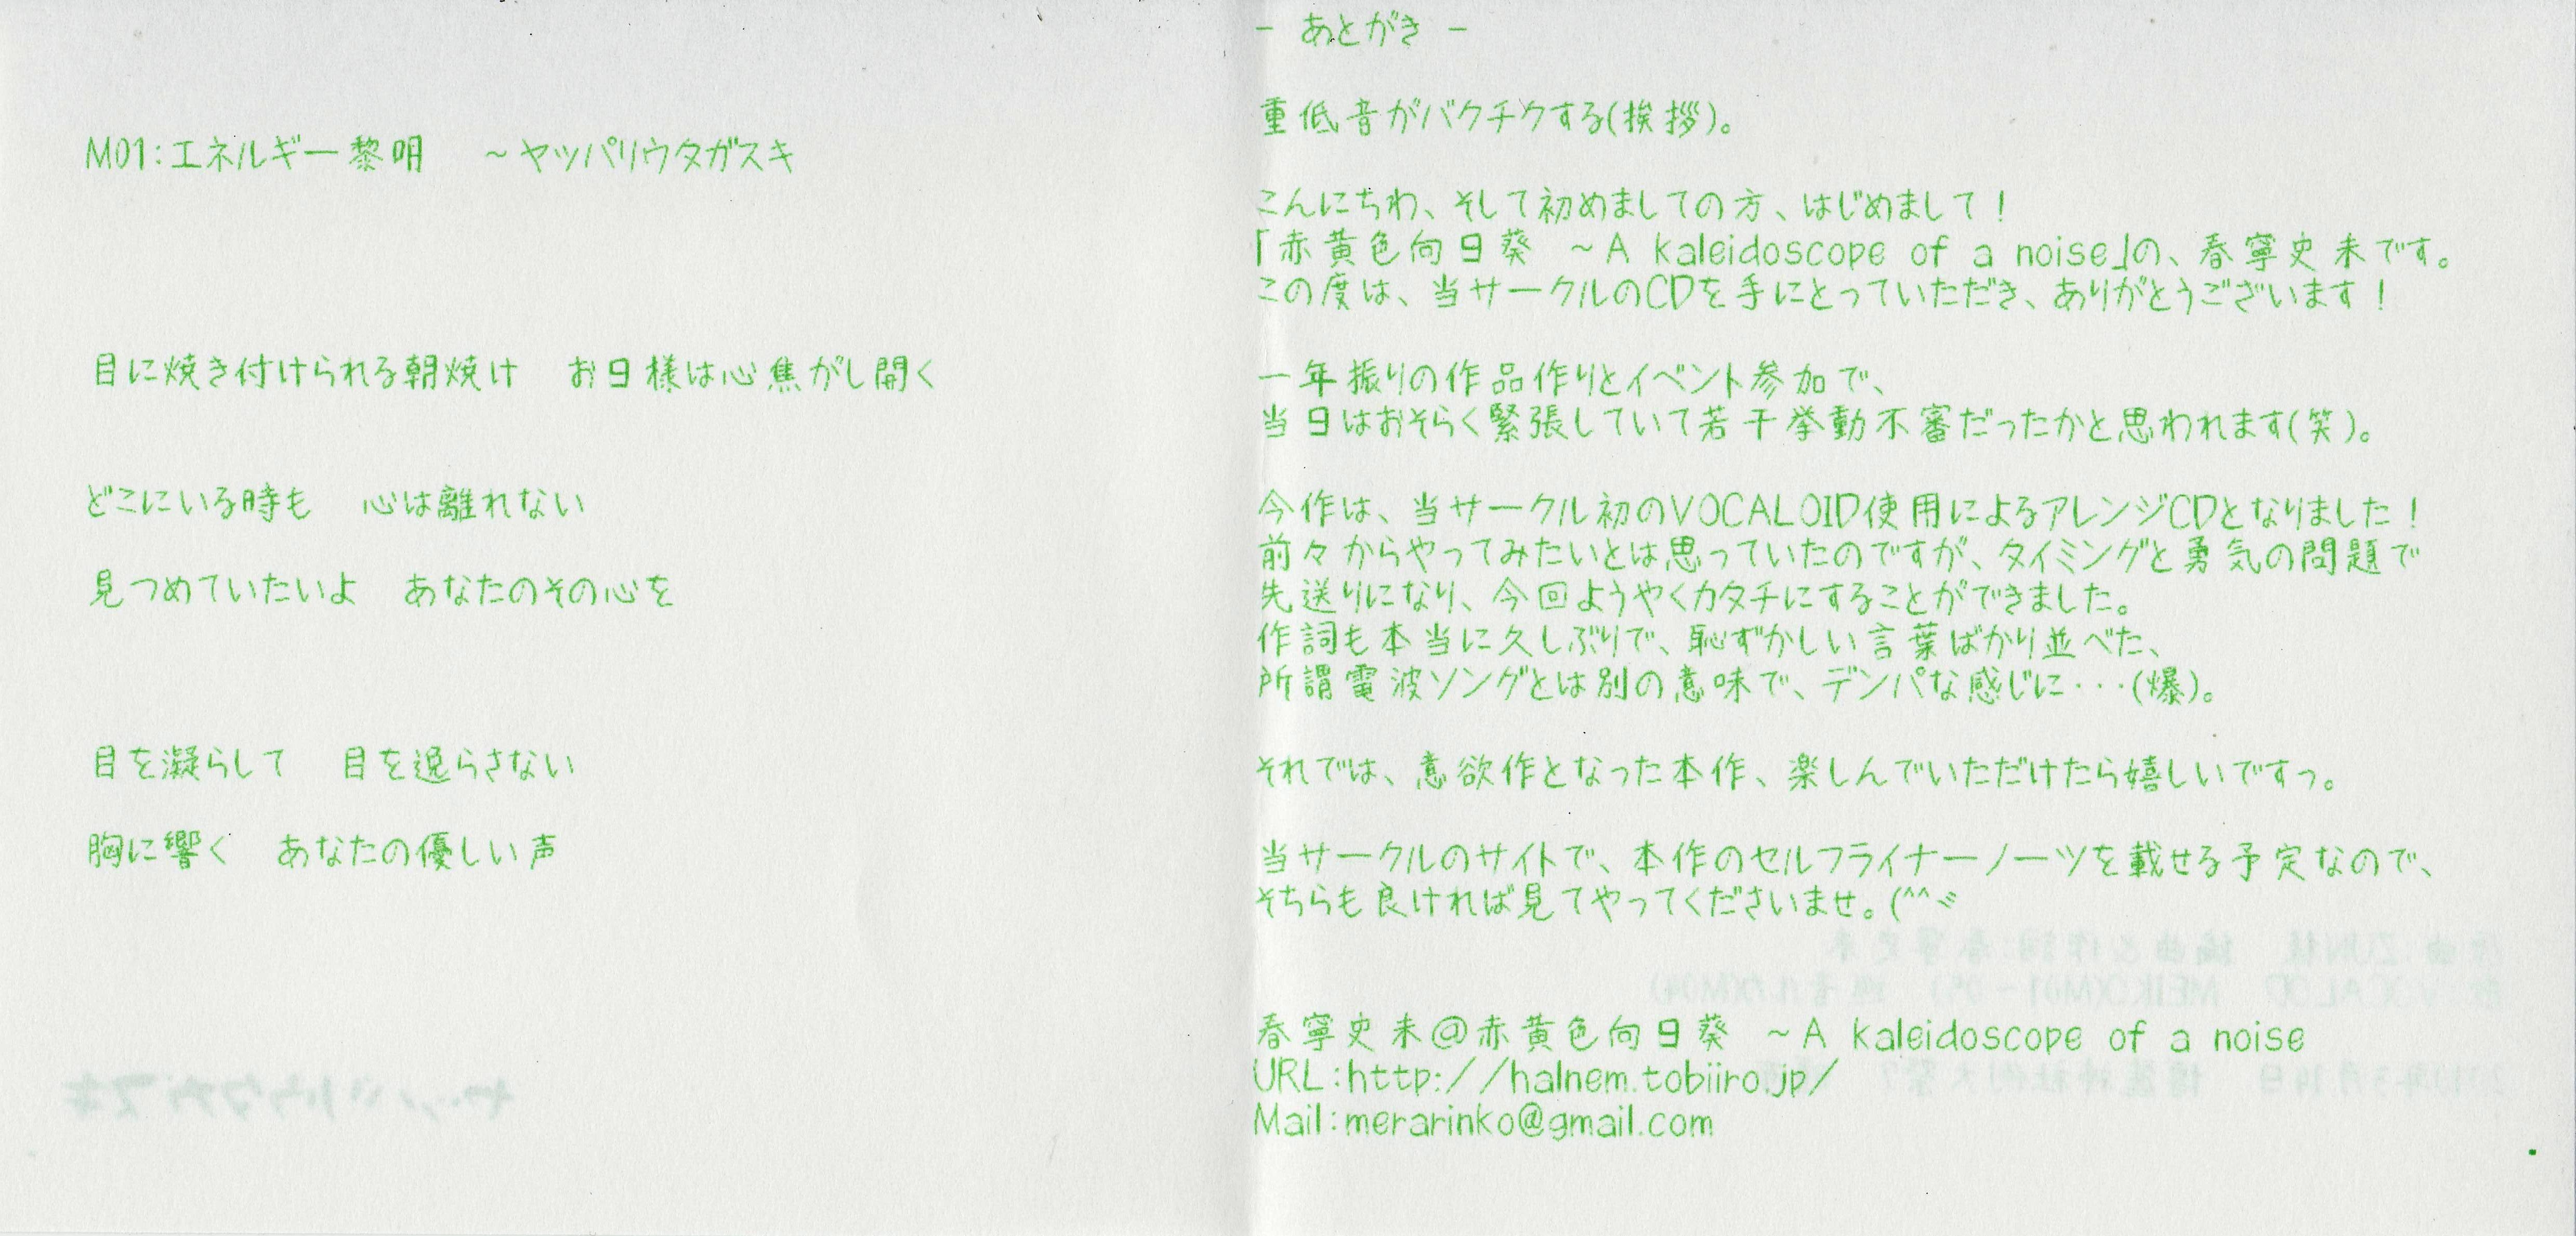 M01:エネルギー黎明　～ヤッパリウタガスキ
目に焼き付けられる朝焼け　お日様は心焦がし開く
どこにいる時も　心は離れない
見つめていたいよ　あなたのその心を
目を凝らして　目を逸らさない
胸に響く　あなたの優しい声
- あとがき -
重低音がバクチクする(挨拶)。
こんにちわ、そして初めましての方、はじめまして！
「赤黄色向日葵　～A kaleidoscope of a noise」の、春寧史未です。
この度は、当サークルのCDを手にとっていただき、ありがとうございます！
一年振りの作品作りとイベント参加で、
当日はおそらく緊張していて若干挙動不審だったかと思われます(笑)。
今作は、当サークル初のVOCALOID使用によるアレンジCDとなりました！
前々からやってみたいとは思っていたのですが、タイミングと勇気の問題で
先送りになり、今回ようやくカタチにすることができました。
作詞も本当に久しぶりで、恥ずかしい言葉ばかり並べた、
所謂電波ソングとは別の意味で、デンパな感じに・・・(爆)。
それでは、意欲作となった本作、楽しんでいただけたら嬉しいですっ。
当サークルのサイトで、本作のセルフライナーノーツを載せる予定なので、
そちらも良ければ見てやってくださいませ。(^^ゞ
春寧史未@赤黄色向日葵　～A kaleidoscope of a noise
URL:http://halnem.tobiiro.jp/
Mail:merarinko@gmail.com